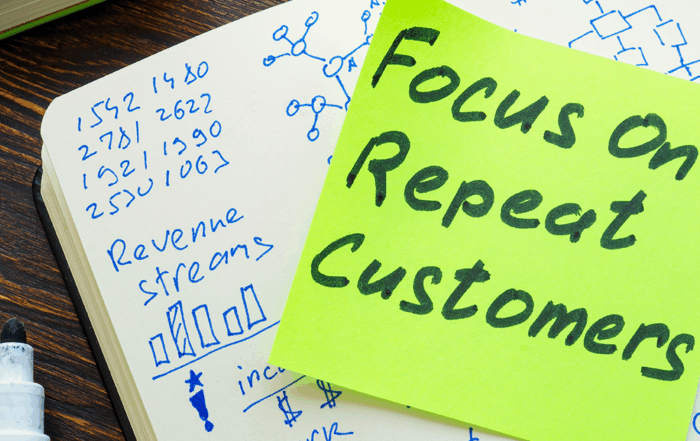 1542 1480
2781 2622
1921 1990
2530 1063
Revenue
streams
$ $
Focus On
Repeat
Customers